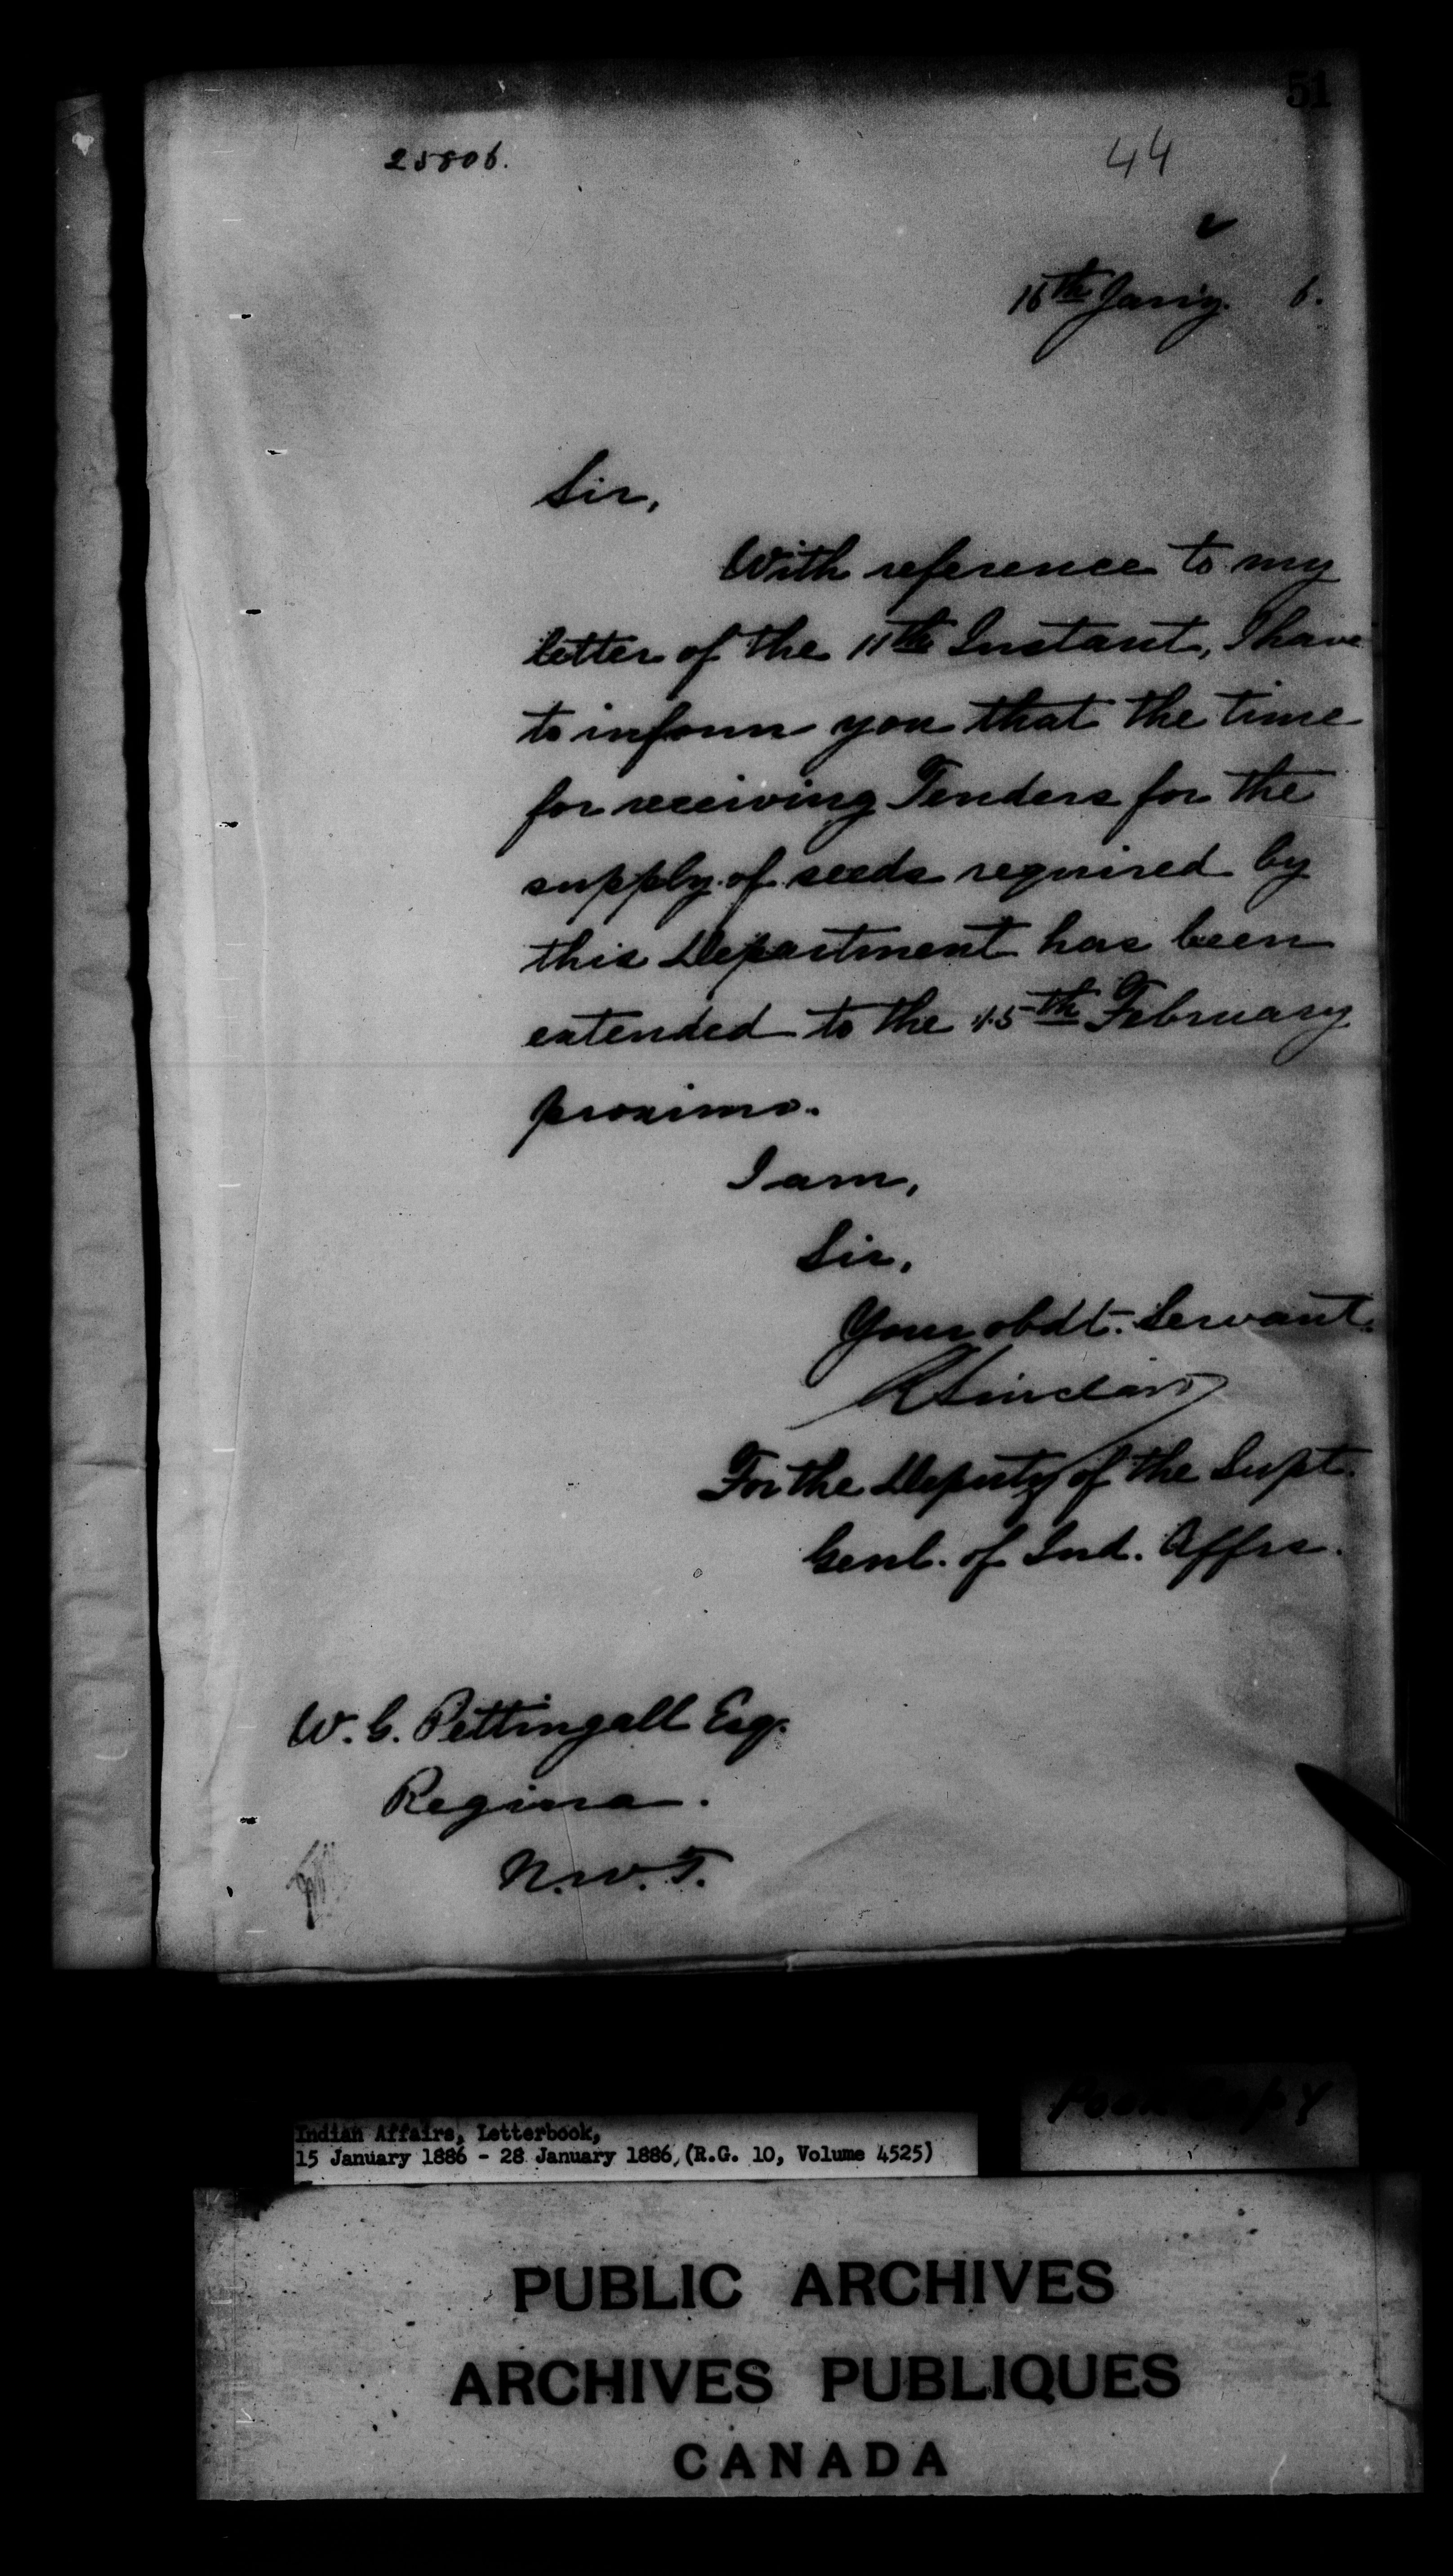 51
25806.
44
16th Jany. 6.
Sir,
With reference to my
letter of the 11th Instant, I have
to inform you that the time
for receiving Tenders for the
supply of seeds required by
this Department has been
extended to the 15th February
proximo.
I am,
Sir,
Your obdt. Servant.
R Sinclair
For the Deputy of the Supt.
Genl. of Ind. Affrs.
W. C. Pettingall Esq.
Regina.
N.W.T.
Poor Copy
Indian Affairs, Letterbook,
15 January 1886 - 28 January 1886, (R.G. 10, Volume 4525)
PUBLIC ARCHIVES
ARCHIVES PUBLIQUES
CANADA